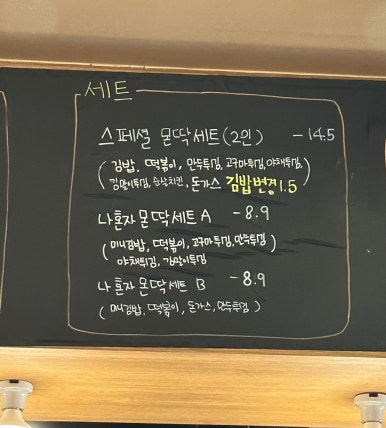 세트
스페셜 몬딱세트(2인) - 14.5
(김밥, 떡볶이, 만두튀김, 고구마튀김, 야채튀김,
김말이튀김, 순살치킨, 돈가스) 김밥변경 1.5
나혼자 몬딱세트 A - 8.9
(미니김밥, 떡볶이, 고구마튀김, 만두튀김
야채튀김, 김말이튀김)
나혼자 몬딱세트 B - 8.9
(미니김밥, 떡볶이, 돈가스, 만두튀김)